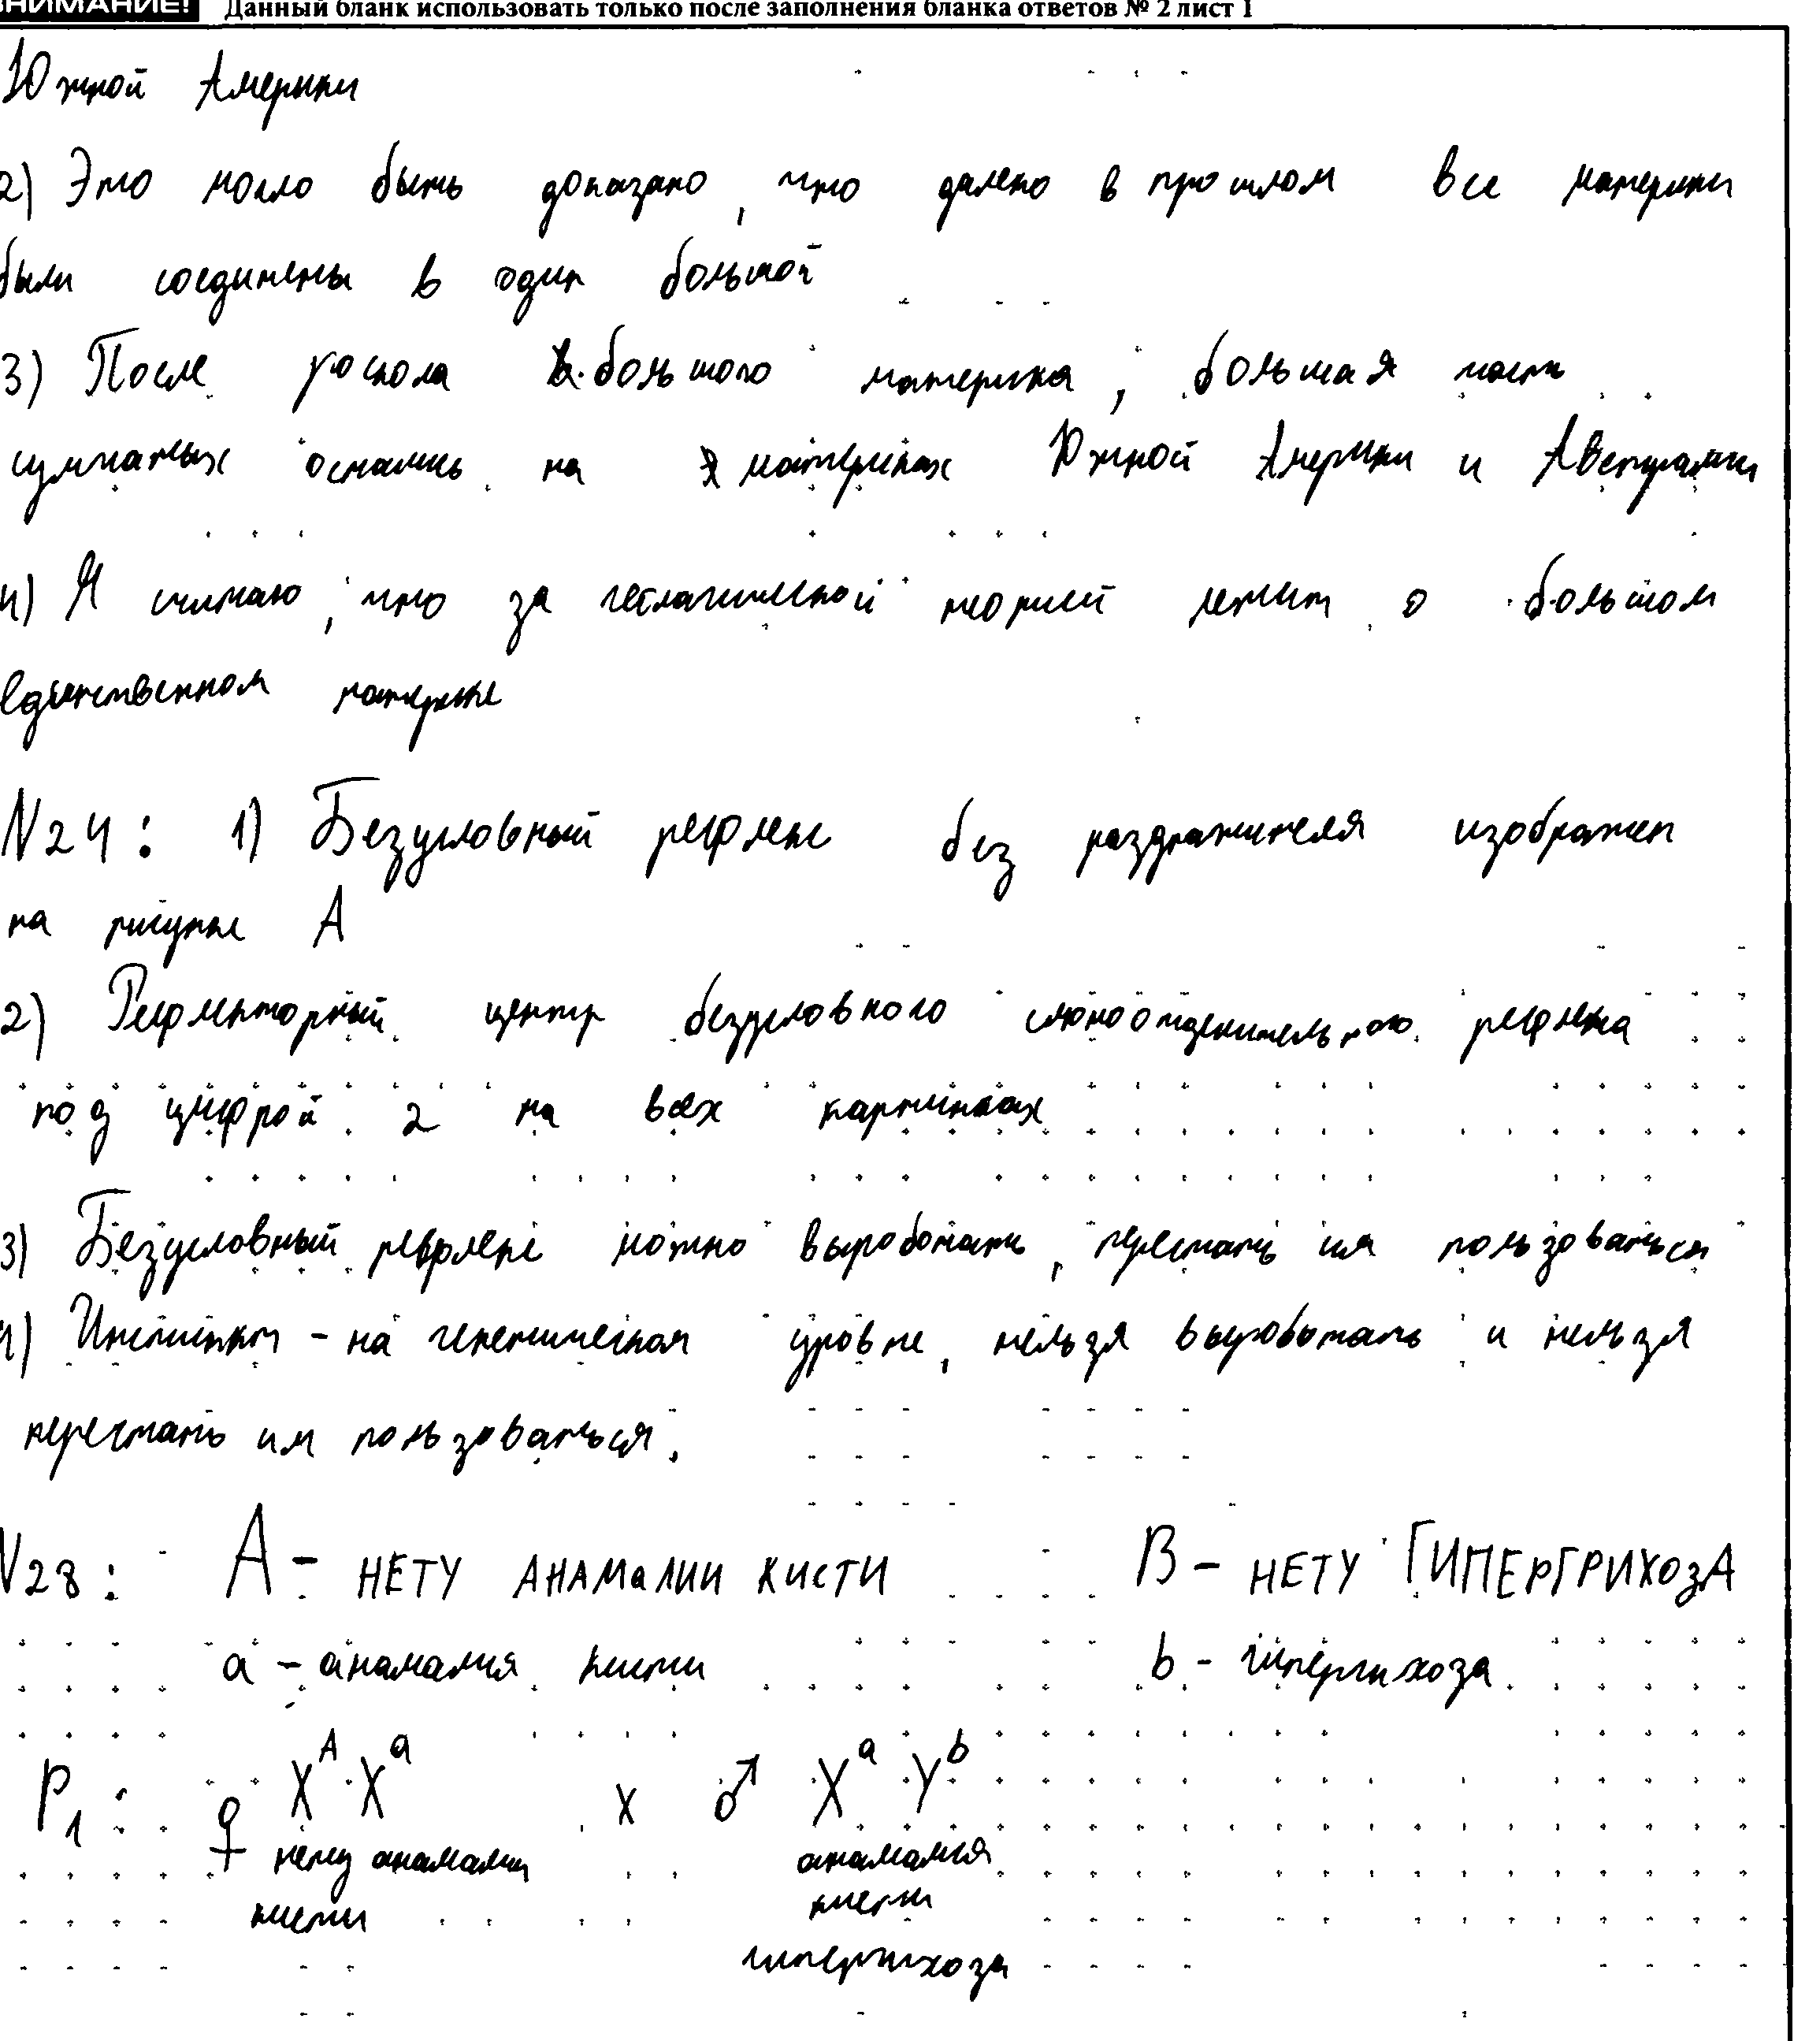 ВНИМАНИЕ! Данный бланк использовать только после заполнения бланка ответов № 2 лист 1
Южной Америки
2) Это могло быть доказано, что далеко в прошлом все материки
были соединены в один большой
3) После раскола большого материка, большая часть
сумчатых остались на материках Южной Америки и Австралии
4) Я считаю, что за геологической теорией лежит о большом
единственном материке
N24: 1) Безусловный рефлекс без раздражителя изображен
на рисунке А
2) Рефлекторный центр безусловного слюноотделительного рефлекса
под цифрой 2 на всех картинках
3) Безусловный рефлекс можно выработать, перестать им пользоваться
4) Инстинкт - на генетическом уровне, нельзя выработать и нельзя
перестать им пользоваться.
N28: A - НЕТУ АНАМаЛИИ КИСТИ B - НЕТУ ГИПЕРГРИХОЗА
a - анамалия кисти b - гипергихоза
P₁: ♀ Xᴬ Xᵃ x ♂ Xᵃ Yᵇ
нету анамалии анамалия
кисти кисти
гипергихоза